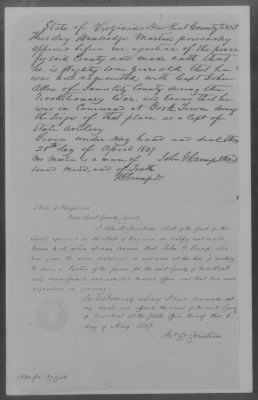 State of Virginia New Kent County to wit
This day Bainbridge personally
appears before me a justice of the peace
for said County and made oath that
he is Eighty four years old that he
was well acquainted with Capt John
Allen of James City County during the
Revolutionary War, and knows that he
was in Command at York Town during
the Siege of that place as a Capt of
State Artilery
Given under my hand and seal this
28th day of April 1847
Mr is a man of John G Crump
Sound mind, and of Truth
State of Virginia
New Kent County Court,
I John D Christian Clerk of the Court of the
County aforesaid in the State of Virginia do certify and make
known that John G Crump who
has given the above certificate is and was at the time of making
the same a Justice of the peace for the said County of New Kent
duly commissioned and qualified and that due
In Testimony whereof I have hereunto set
my hand and affixed the seal of the said County
of New Kent at the Clerks Office hereof this 6th
day of May 1847.
Jno D Christian